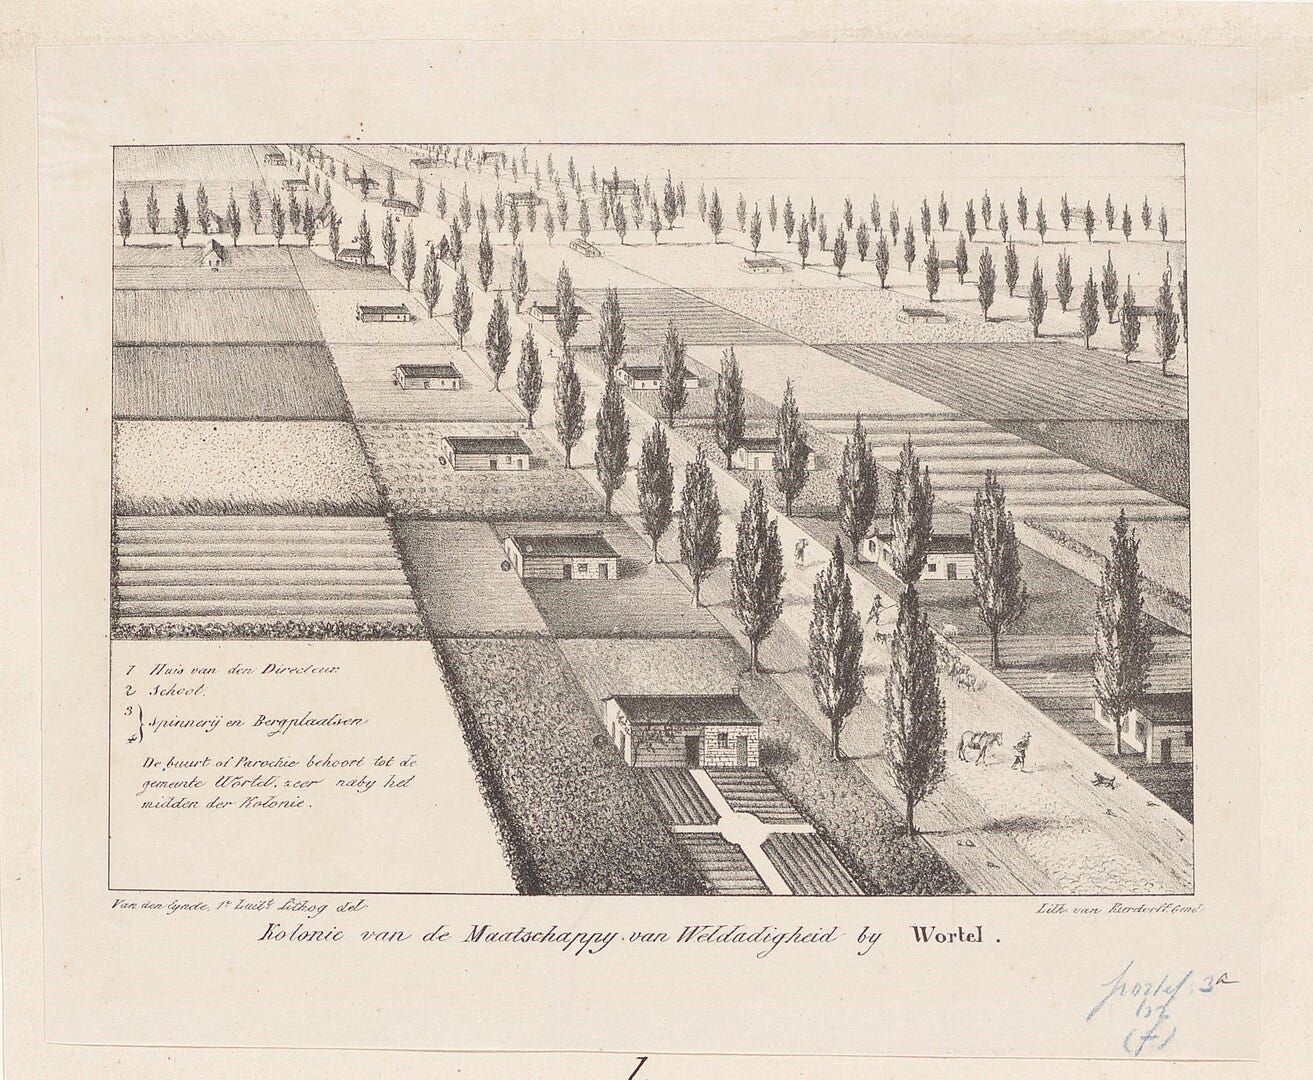 1 Huis van den Directeur.
2 School.
3
4 } Spinnerij en Bergplaatsen
De buurt of Parochie behoort tot de
gemeente Wortel, zeer naby het
midden der Kolonie.
Van den Eynde, 1e Luitt Lithog del
Lith. van Kierdorff. Gend
Kolonie van de Maatschappy van Weldadigheid by Wortel.
3a
(f)
1.